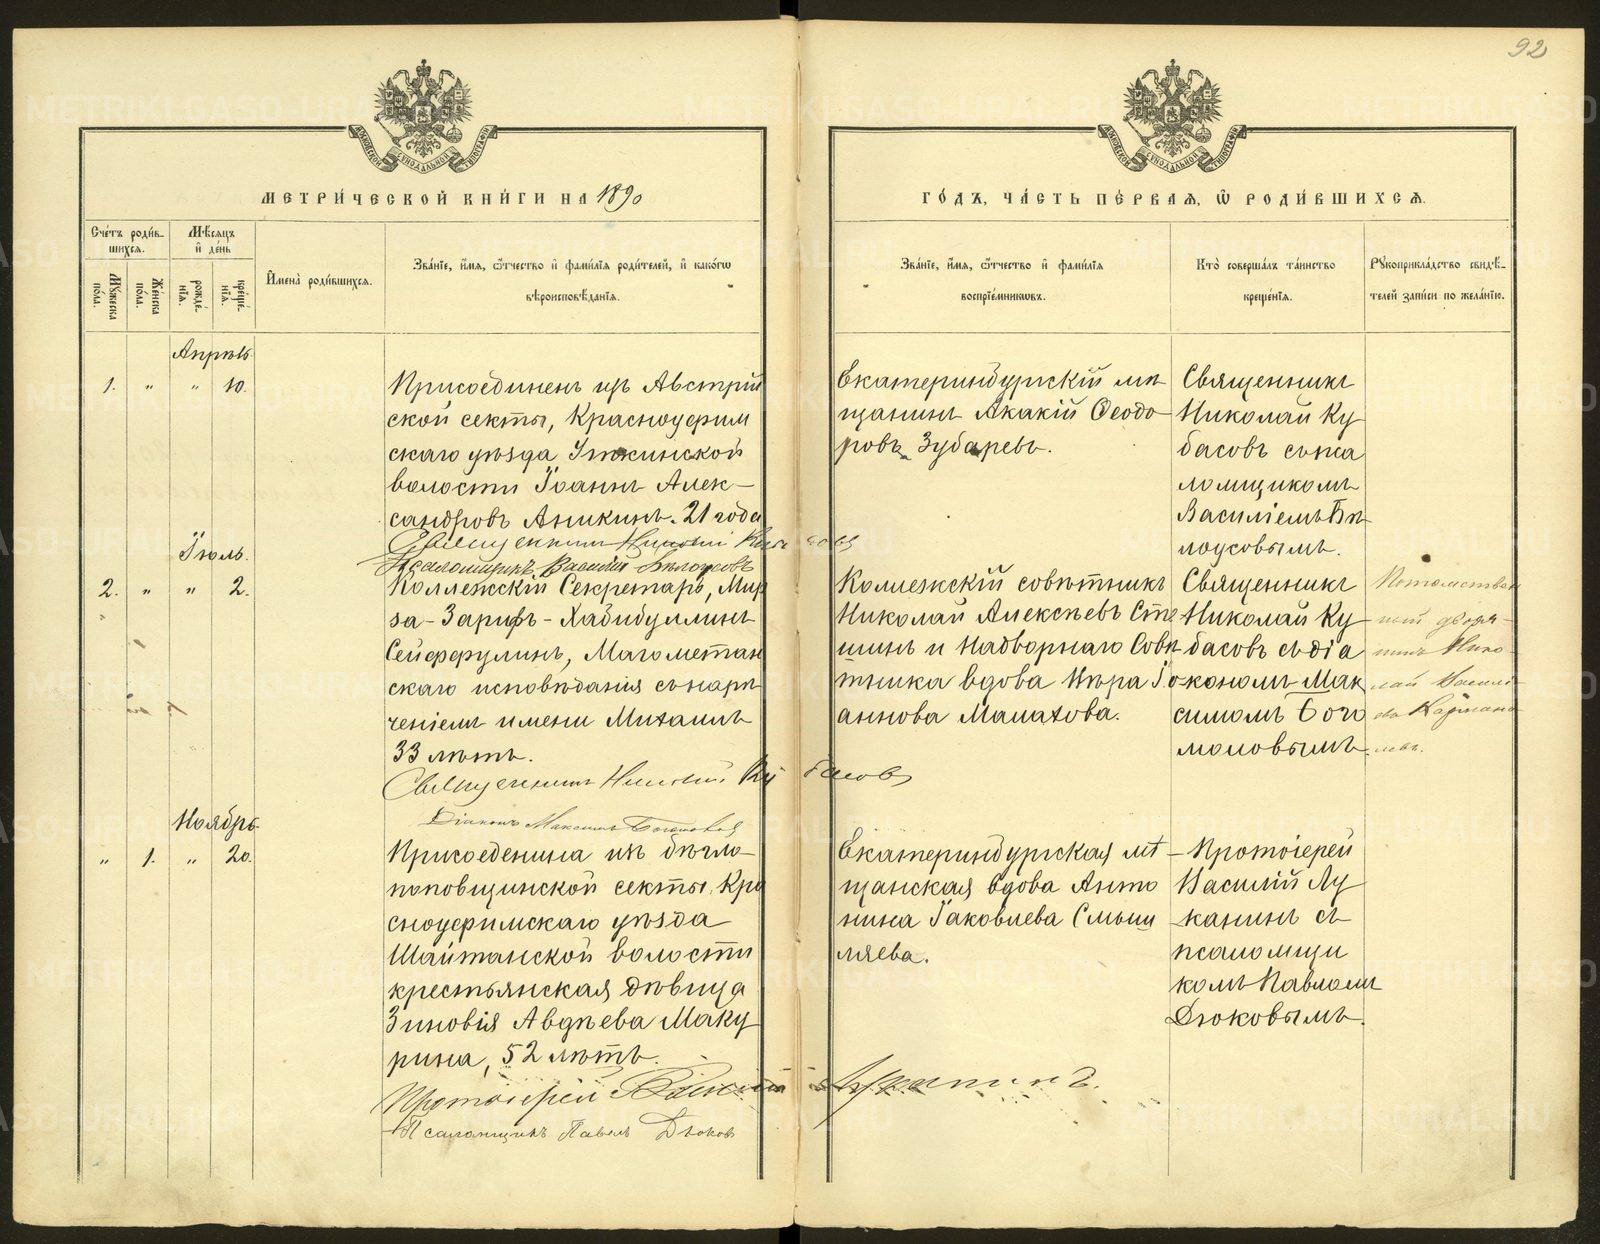 92
МЕТРИ́ЧЕСКОЙ КНИ́ГИ НА 1890
ГО́ДЪ, ЧА́СТЬ ПЕ́РВАЯ, Ѿ РОДИ́ВШИХСЯ.
Сче́тъ роди́в-
шихся.
Мѣ́сяцъ
и҆ де́нь
Му́жеска
по́ла.
Же́нска
по́ла.
рожде́-
нїя.
креще́-
нїя.
И҆мена̀ роди́вшихся.
Зва́нїе, и҆́мя, ѻ҆́тчество и҆ фами́лїя роди́телей, и҆ како́гѡ
вѣроисповѣ́данїя.
Зва́нїе, и҆́мя, ѻ҆́тчество и҆ фами́лїя
воспрїе́мникѡвъ.
Кто̀ соверша́лъ та́инство
креще́нїя.
Рꙋкоприкла́дство свидѣ́-
телей за́писи по жела́нїю.
Апрѣль
1. " " 10.
Присоединенъ изъ Австрій
ской секты, Красноуфим
скаго уѣзда Уткинской
волости Іоаннъ Алек-
сандровъ Аникинъ. 21 года
Священникъ Николай Кубасовъ
Псаломщикъ Василій Бѣлоусовъ
Екатеринбургскій мѣ
щанинъ Акакій Ѳеодо
ровъ Зубаревъ.
Священникъ
Николай Ку
басовъ съ пса
ломщикомъ
Василіемъ Бѣ
лоусовымъ.
Іюль.
2. " " 2.
Коллежскій Секретарь, Мир
за-Зарифъ-Хабибуллинъ
Сейфуллинъ, Магометан
скаго исповѣданія съ наре
ченіемъ имени Михаилъ
33 лѣтъ.
Священникъ Николай Кубасовъ
Діаконъ Максимъ Богомоловъ
Коллежскій совѣтникъ
Николай Алексѣевъ Сте
шинъ и Надворнаго Совѣ
тника вдова Вѣра Іо
аннова Малахова.
Священникъ
Николай Ку
басовъ съ діа
кономъ Мак
симомъ Бого
моловымъ.
Потомствен
ный дворя-
нинъ Нико-
лай Василь
евъ
Ноябрь
" 1. " 20.
Присоеденина изъ бѣгло-
поповщинской секты, Кра
сноуфимскаго уѣзда
Шайтанской волости
крестьянская дѣвица
Зиновія Авдѣева Маку
рина, 52 лѣтъ.
Протоіерей Василій Луканинъ.
Псаломщикъ Павелъ Дюковъ
Екатеринбургская мѣ-
щанская вдова Анто
нина Іаковлева Смыш
ляева.
Протоіерей
Василій Лу
канинъ съ
псаломщи
комъ Павломъ
Дюковымъ.